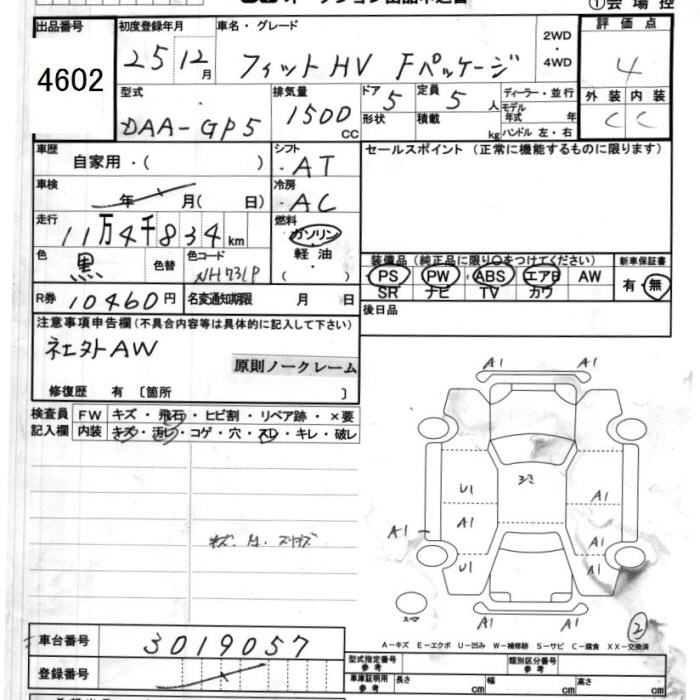 ①会場控
出品番号
4602
初度登録年月
25 12月
車名・グレード
フィットHV Fパッケージ
2WD
・
4WD
評価点
4
外装 内装
C C
型式
DAA-GP5
排気量
1500 CC
ドア 5
形状
定員 5 人
積載 kg
ディーラー・並行
モデル年式 年
ハンドル 左・右
車歴
自家用・( )
シフト
AT
車検
年 月( 日)
冷房
AC
走行
11万4千834km
燃料
ガソリン
軽油
( ・ )
色
黒
色替
色コード
NH731P
R券 10460円
名変通知期限 月 日
セールスポイント (正常に機能するものに限ります)
装備品(純正品に限り○をつけてください)
PS PW ABS エアB AW
SR ナビ TV カワ
新車保証書
有・無
後日品
注意事項申告欄(不具合内容等は具体的に記入して下さい)
社外AW
原則ノークレーム
修復歴 有 〔箇所 〕
検査員
記入欄
FW キズ・飛石・ヒビ割・リペア跡・×要
内装 キズ・汚レ・コゲ・穴・スレ・キレ・破レ
A1 A1
U1
A1
A1
A1
U1
A1
A1
A1 A1
スペア
2
A-キズ E-エクボ U-凹み W-補修跡 S-サビ C-腐食 XX-交換済
車台番号
3019057
登録番号
型式指定番号 参考
類別区分番号 参考
車庫証明用 参考
長さ cm
幅 cm
高さ cm